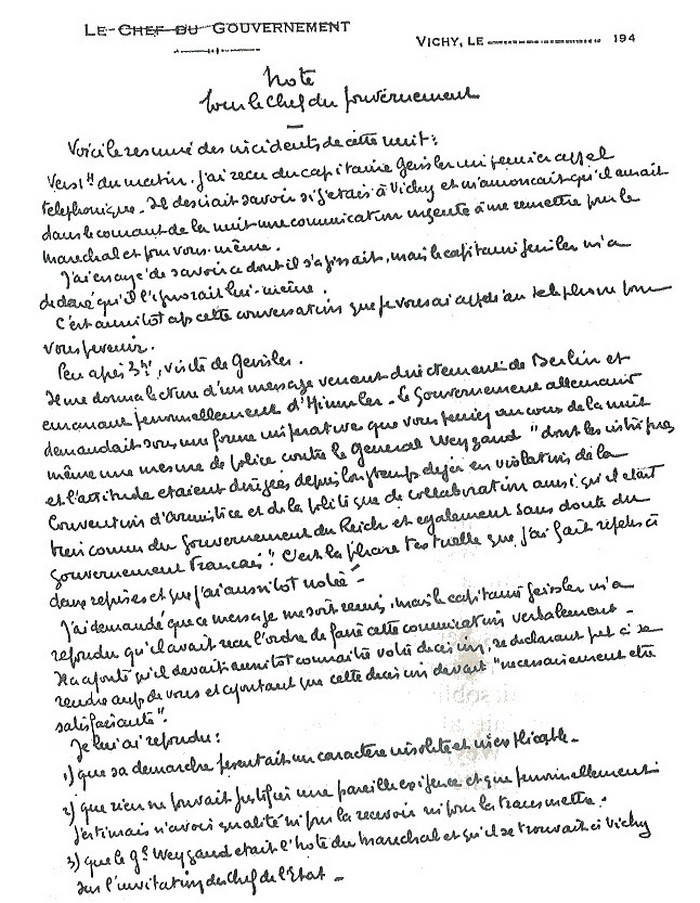 LE CHEF DU GOUVERNEMENT
VICHY, LE 194
Note
pour le Chef du Gouvernement
Voici le resumé des incidents de cette nuit :
Vers 1h du matin, j'ai recu du capitaine Geissler un premier appel
telephonique. Il desirait savoir si j'etais à Vichy et m'annoncait qu'il aurait
dans le courant de la nuit une communication urgente à me remettre pour le
marechal et pour vous-même.
J'ai essayé de savoir ce dont il s'agissait, mais le capitaine Geissler m'a
declaré qu'il l'ignorait lui-même.
C'est aussitot apres cette conversation que je vous ai appelé au telephone pour
vous prevenir.
Peu après 3h, visite de Geissler.
Il me donna lecture d'un message venant directement de Berlin et
emanant personnellement d'Himmler. Le Gouvernement allemand
demandait sous une forme imperative que vous preniez au cours de la nuit
même une mesure de police contre le General Weygand "dont les intrigues
et l'attitude etaient dirigées depuis longtemps dejà en violation de la
Convention d'armistice et de la politique de collaboration ainsi qu'il etait
bien connu du Gouvernement du Reich et egalement sans doute du
Gouvernement Francais". C'est la phrase textuelle que j'ai fait repeter à
deux reprises et que j'ai aussitot notée.
J'ai demandé que ce message me soit remis, mais le capitaine Geissler m'a
repondu qu'il avait recu l'ordre de faire cette communication verbalement.
Il a ajouté qu'il devait aussitot connaitre votre decision, se declarant pret à se
rendre auprès de vous et ajoutant que cette decision devait "necessairement etre
satisfaisante".
Je lui ai repondu :
1) que sa demarche presentait un caractère insolite et inexplicable.
2) que rien ne pouvait justifier une pareille exigence et que personnellement
j'estimais n'avoir qualité ni pour la recevoir ni pour la transmettre.
3) que le Gal Weygand etait l'hote du Marechal et qu'il se trouvait à Vichy
sur l'invitation du Chef de l'Etat.